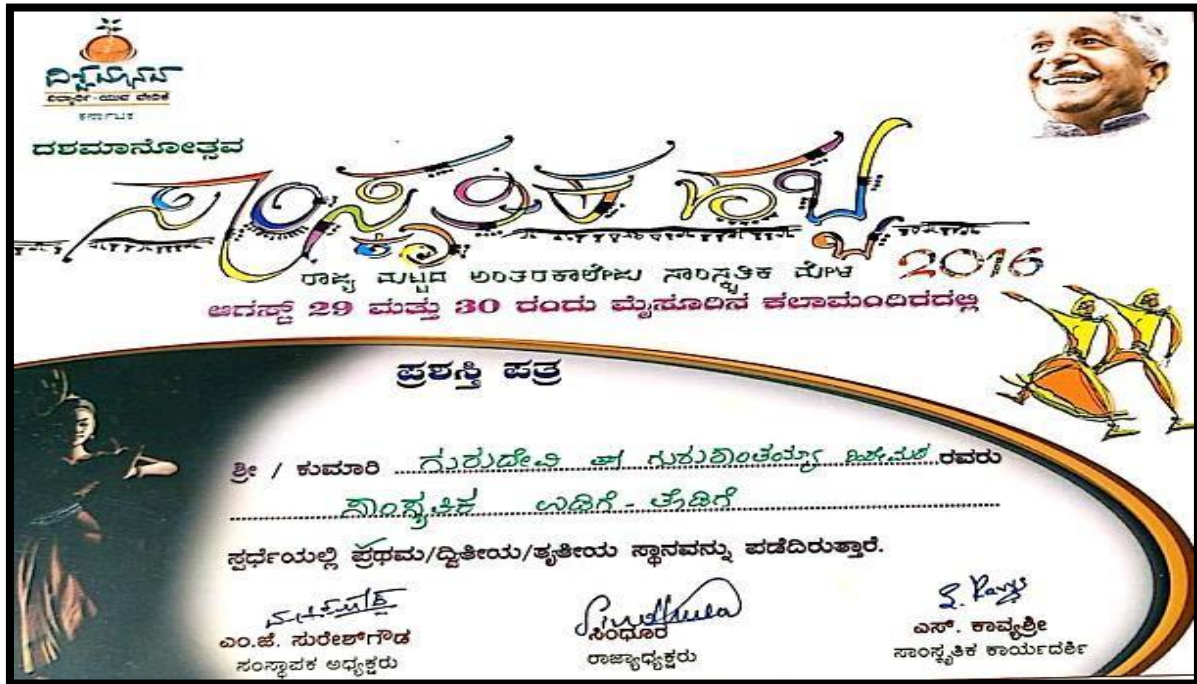 ವಿಶ್ವಮಾನವ
ವಿದ್ಯಾರ್ಥಿ-ಯುವ ವೇದಿಕೆ
ಕರ್ನಾಟಕ
ದಶಮಾನೋತ್ಸವ
ಸಾಂಸ್ಕೃತಿಕ ಹಬ್ಬ
2016
ರಾಜ್ಯ ಮಟ್ಟದ ಅಂತರಕಾಲೇಜು ಸಾಂಸ್ಕೃತಿಕ ಮೇಳ
ಆಗಸ್ಟ್ 29 ಮತ್ತು 30 ರಂದು ಮೈಸೂರಿನ ಕಲಾಮಂದಿರದಲ್ಲಿ
ಪ್ರಶಸ್ತಿ ಪತ್ರ
ಶ್ರೀ / ಕುಮಾರಿ ಗುರುದೇವಿ ಗುರುಶಾಂತಯ್ಯಾ ಹಿರೇಮಠ ರವರು
ಸಾಂಸ್ಕೃತಿಕ ಉಡಿಗೆ - ತೊಡಿಗೆ
ಸ್ಪರ್ಧೆಯಲ್ಲಿ ಪ್ರಥಮ/ದ್ವಿತೀಯ/ತೃತೀಯ ಸ್ಥಾನವನ್ನು ಪಡೆದಿರುತ್ತಾರೆ.
ಎಂ.ಜೆ. ಸುರೇಶ್‌ಗೌಡ
ಸಂಸ್ಥಾಪಕ ಅಧ್ಯಕ್ಷರು
ಸಿಂಧೂರ
ರಾಜ್ಯಾಧ್ಯಕ್ಷರು
ಎಸ್. ಕಾವ್ಯಶ್ರೀ
ಸಾಂಸ್ಕೃತಿಕ ಕಾರ್ಯದರ್ಶಿ